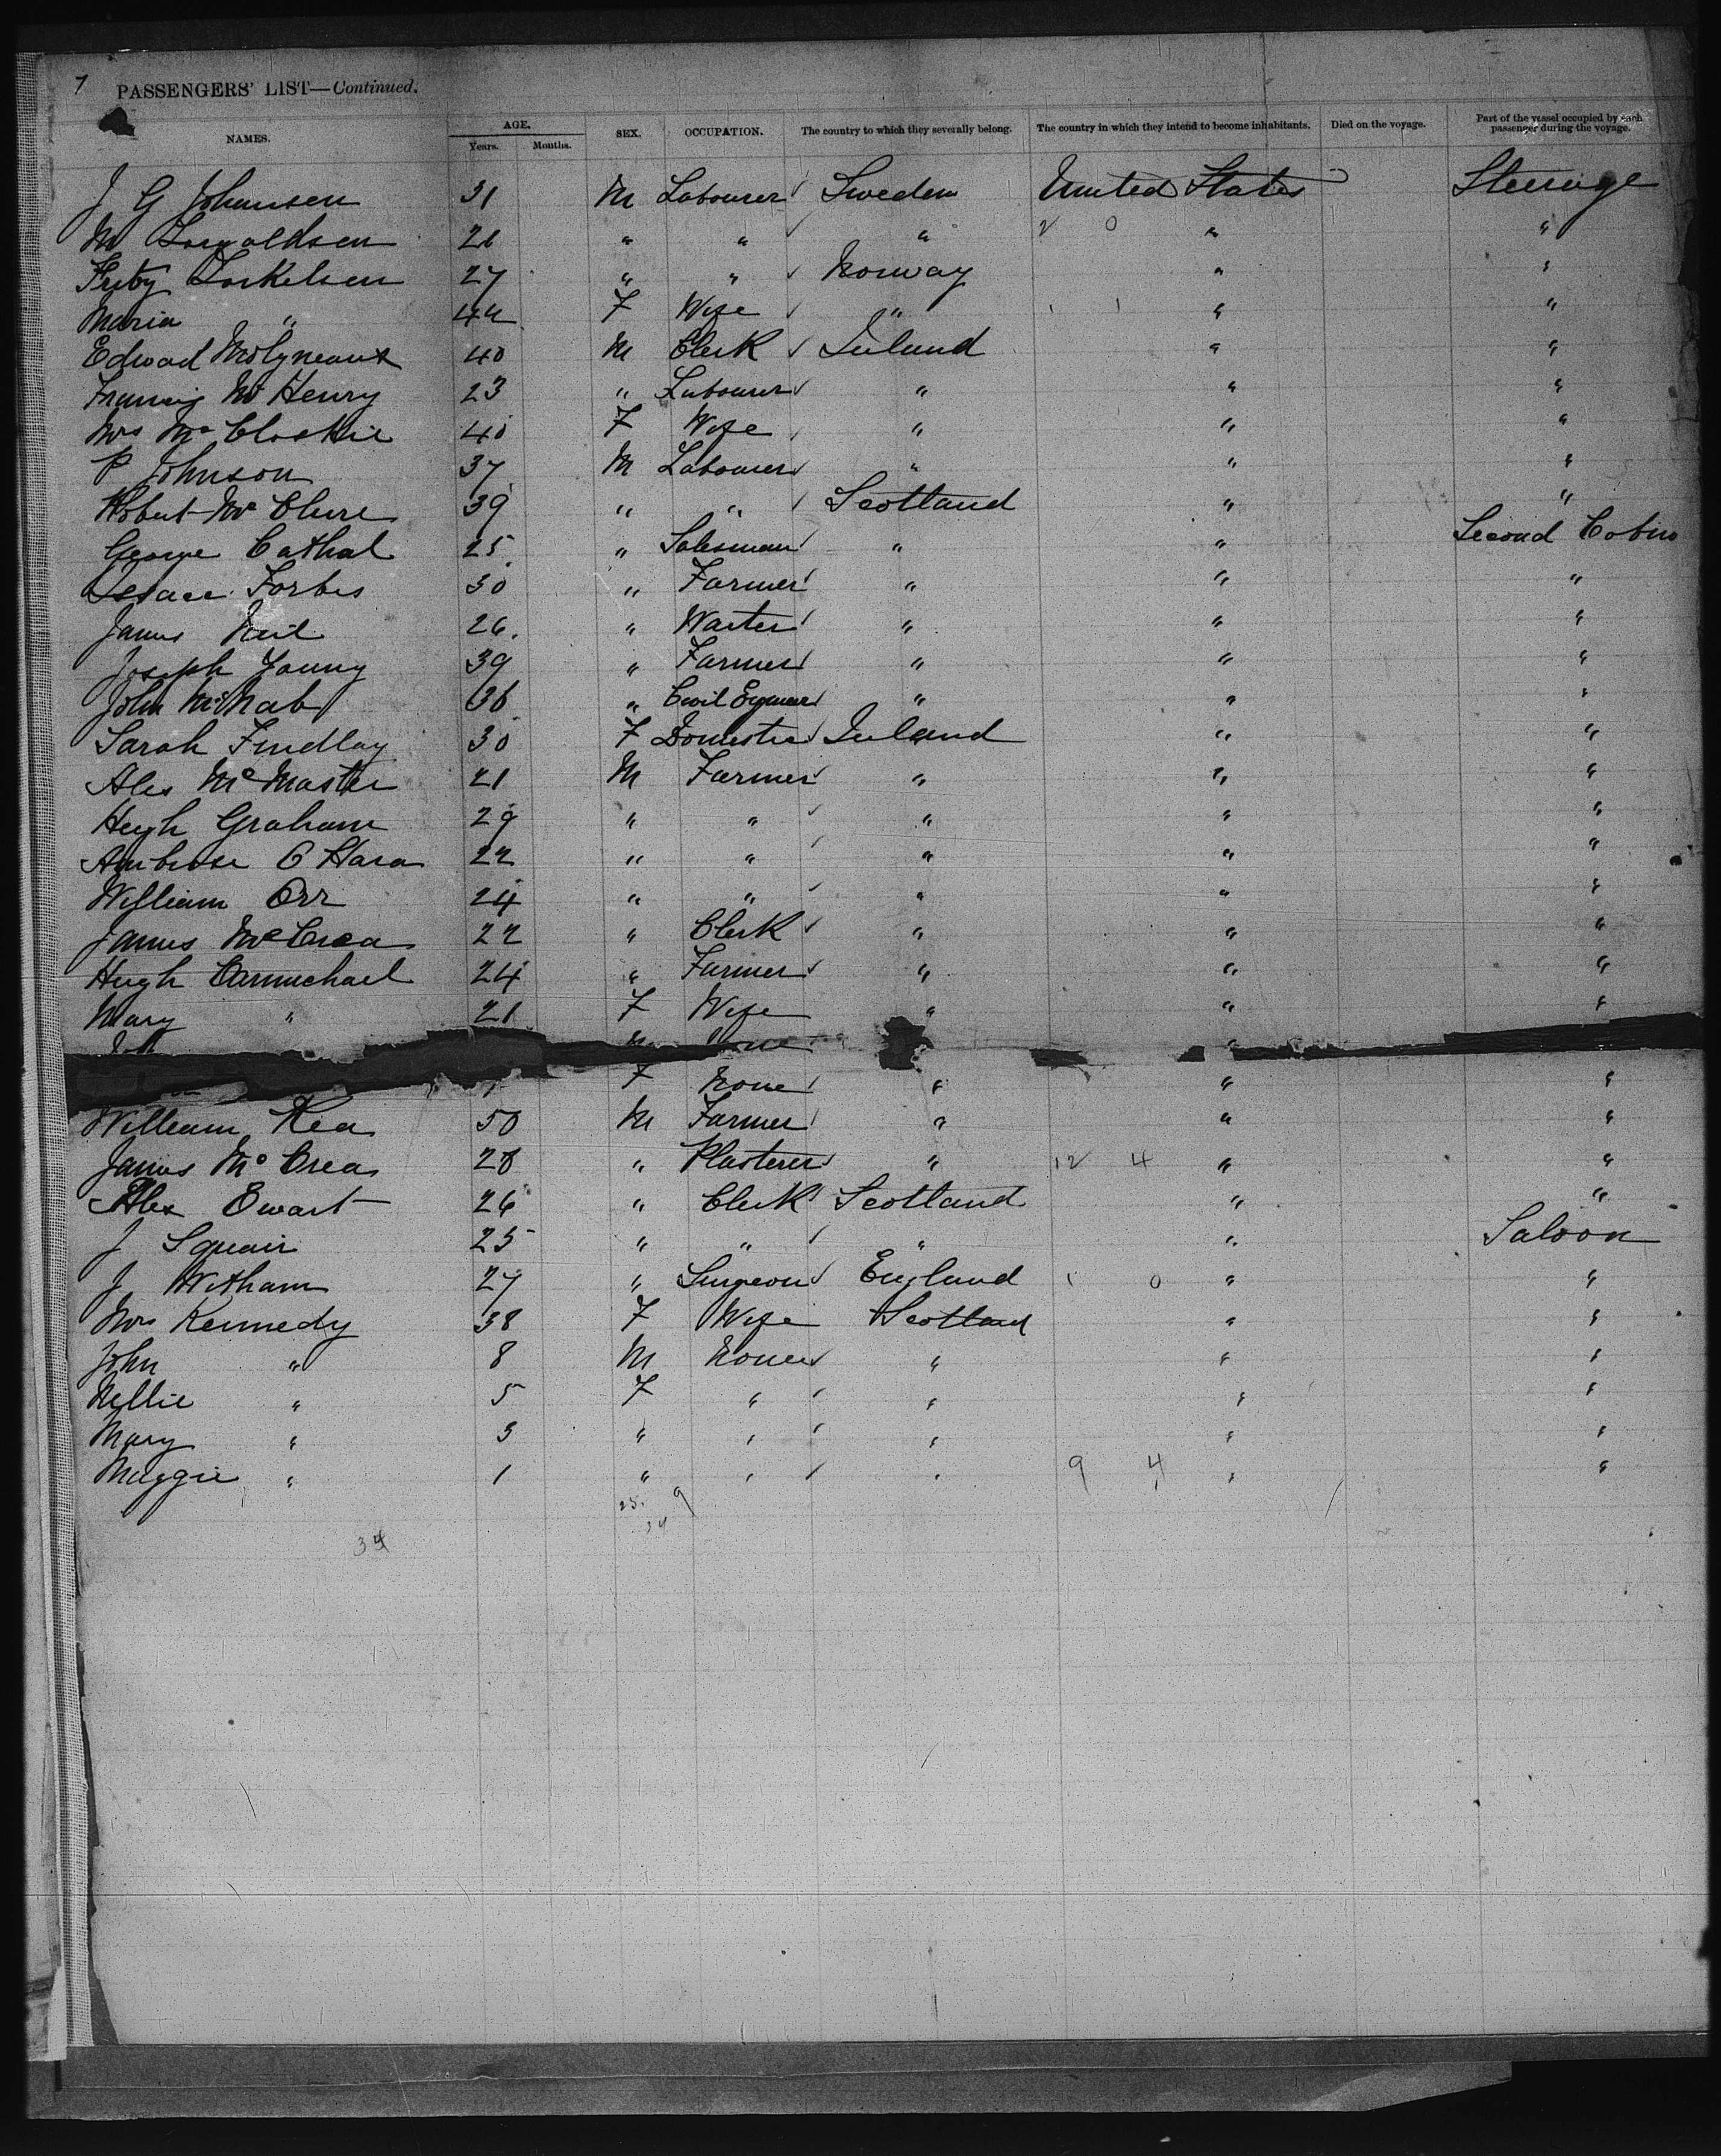 7 PASSENGERS' LIST—Continued.
NAMES. AGE. Years. Months. SEX. OCCUPATION. The country to which they severally belong. The country in which they intend to become inhabitants. Died on the voyage. Part of the vessel occupied by each passenger during the voyage.
J G Johansen 31 M Labourer Sweden United States Steerage
M 26 " " " 2 0 " "
Torkelsen 27 " " Norway " "
Maria " 42 F Wife " 1 1 " "
Edwad Molyneaux 40 M Clerk Ireland " "
Francis Mc Henry 23 " Labourer " " "
Mrs Mc Closkie 40 F Wife " " "
P Johnson 37 M Labourer " " "
Robert Mc Clure 39 " " Scotland " "
George Cathal 25 " Salesman " " Second Cabin
Forbes 30 " Farmer " " "
James Neil 26. " Waiter " " "
Joseph Young 39 " Farmer " " "
John McNab 36 " Civil Engineer " " "
Sarah Findlay 30 F Domestic Ireland " "
Alex McMaster 21 M Farmer " " "
Hugh Graham 29 " " " " "
Ambrose O Hara 22 " " " " "
William Orr 24 " " " " "
James McCrea 22 " Clerk " " "
Hugh Carmichael 24 " Farmer " " "
Mary " 21 F Wife " " "
"
F None " " "
William Rea 50 M Farmer " " "
James Mc Crea 28 " Plasterer " 12 4 " "
Alex Ewart 26 " Clerk Scotland " "
J Squair 25 " " " " Saloon
J Witham 27 " Surgeon England 1 0 " "
Mrs Kennedy 38 F Wife Scotland " "
John " 8 M None " " "
Nellie " 5 F " " " "
Mary " 3 " " " " "
Maggie " 1 " " " 9 4 " "
25 9
34
34